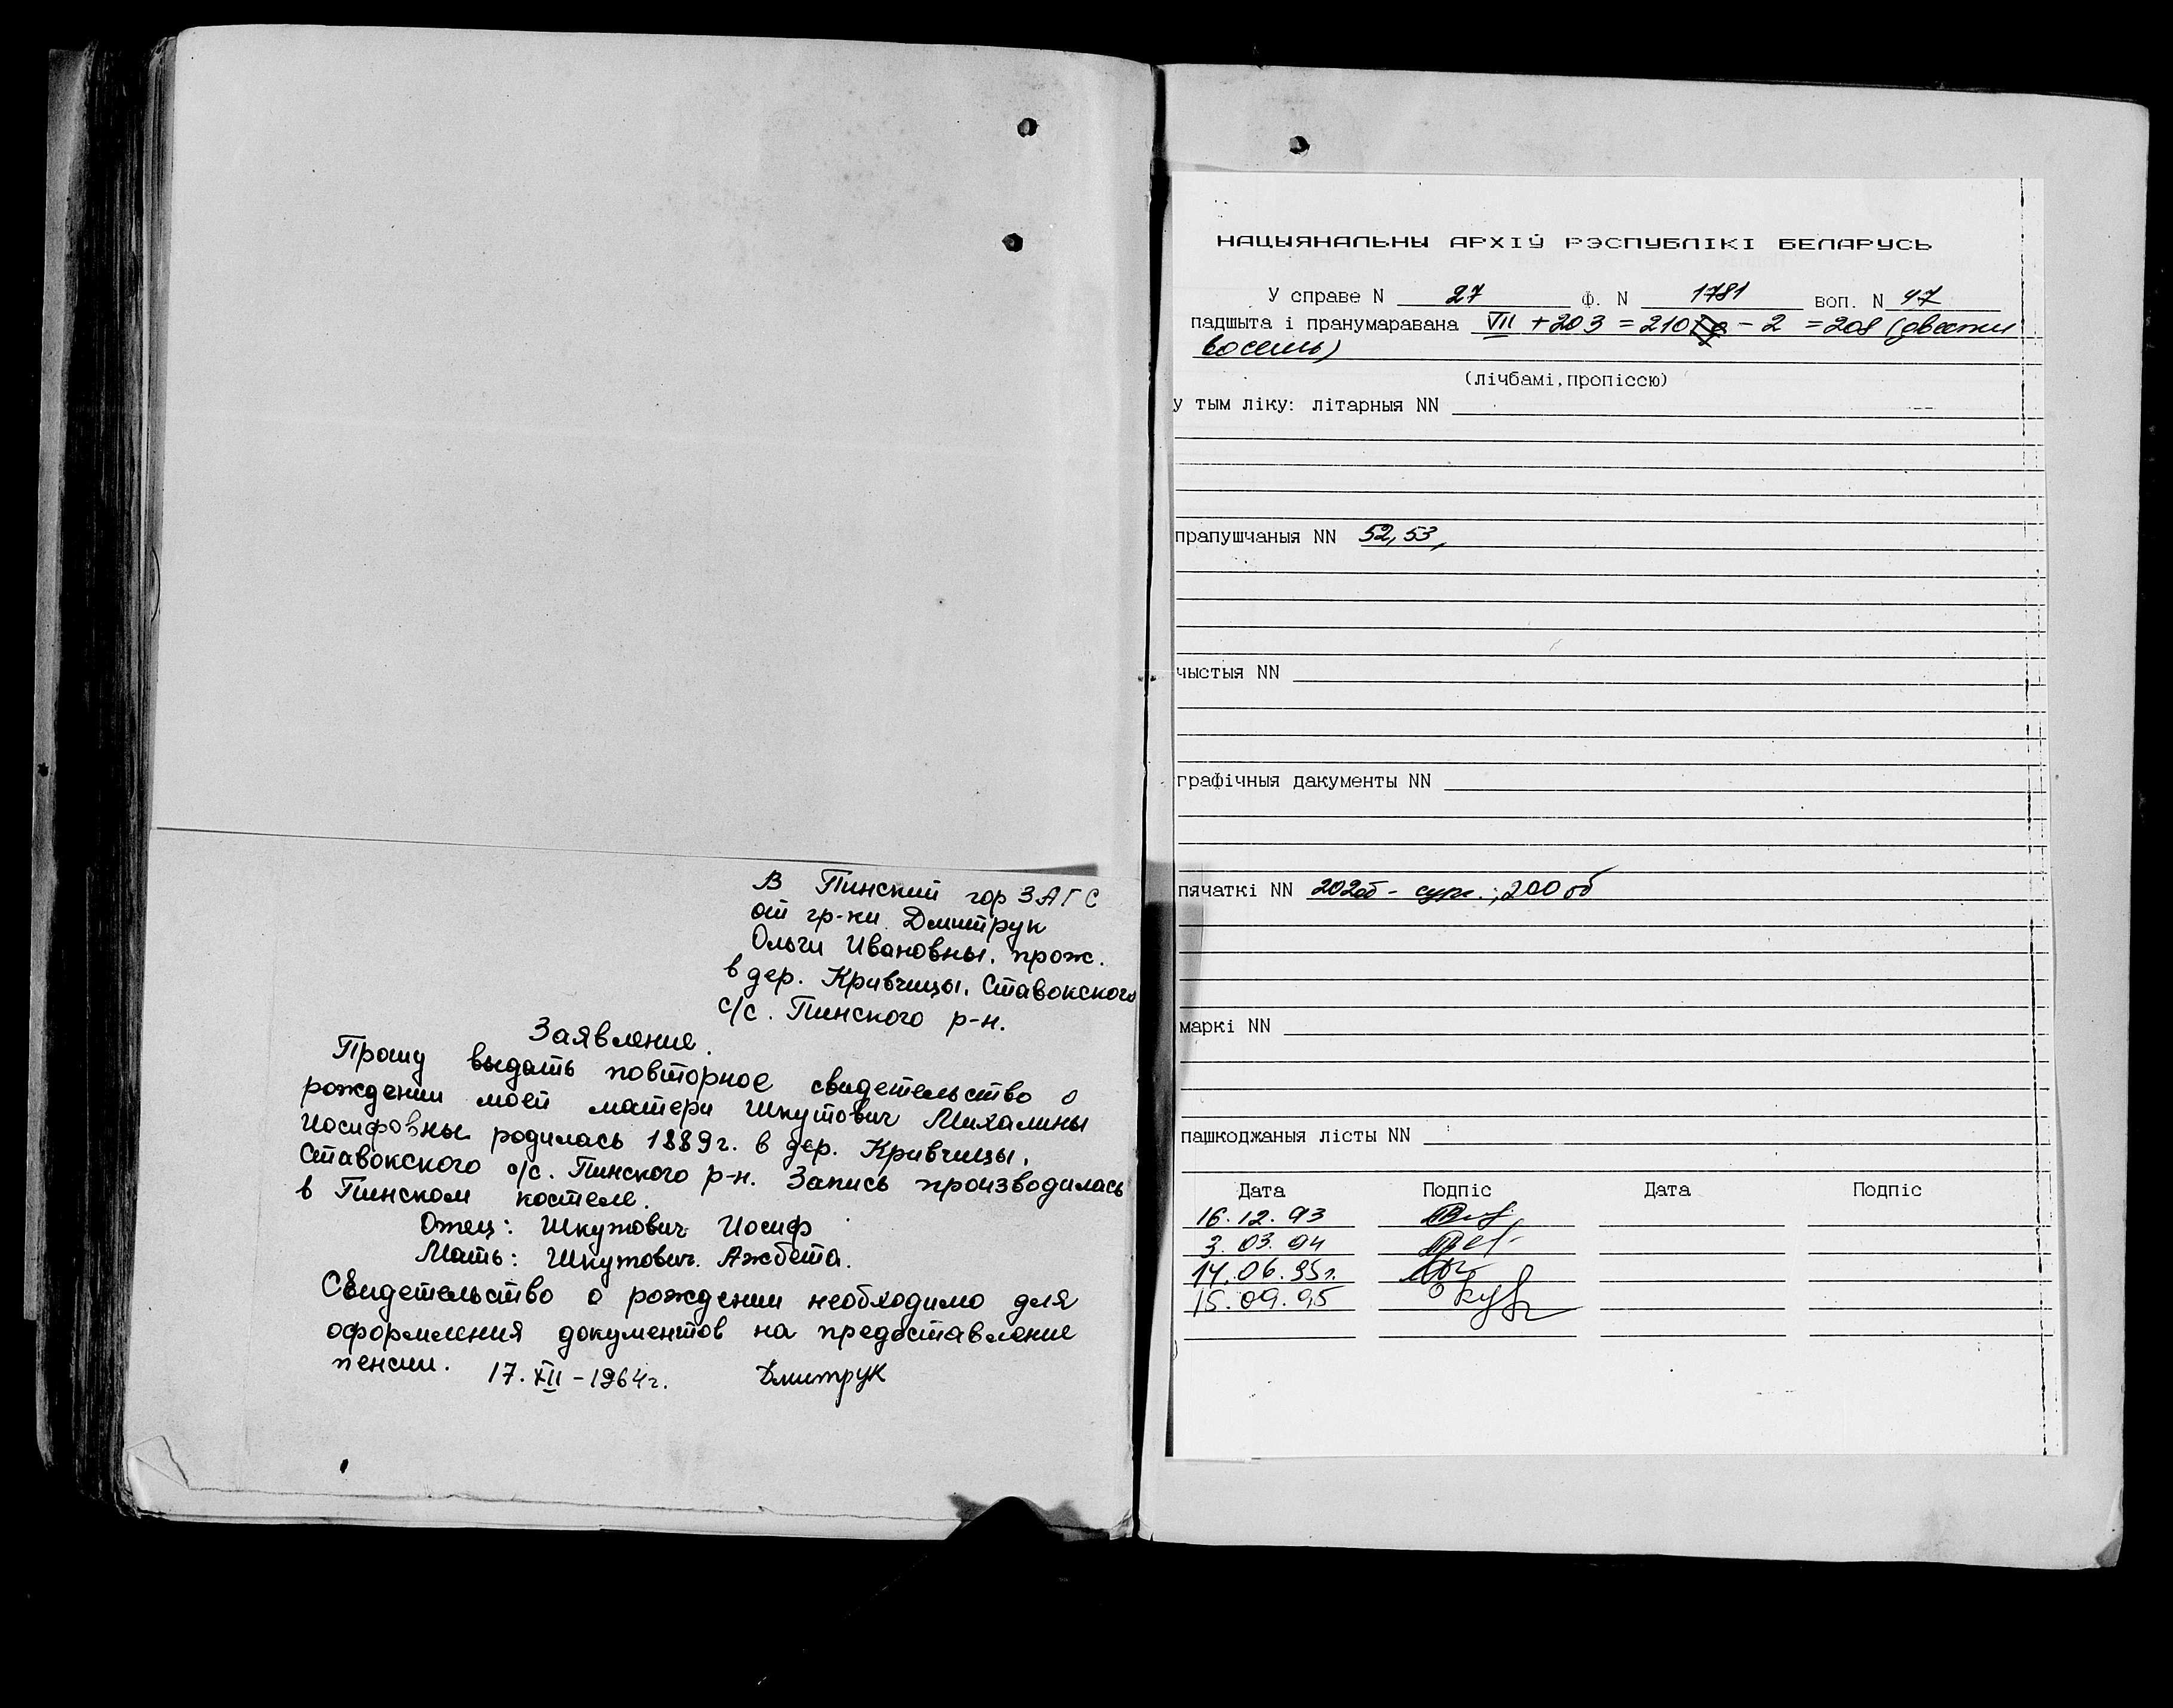 В Пинский гор ЗАГС
от гр-ки Дмитрук
Ольги Ивановны, прож.
в дер. Кривчицы, Ставокского
с/с. Пинского р-н.
Заявление.
Прошу выдать повторное свидетельство о
рождении моей матери Шкутович Михалины
Иосифовны родилась 1889г. в дер. Кривчицы,
Ставокского с/с. Пинского р-н. Запись производилась
в Пинском костеле.
Отец: Шкутович Иосиф
Мать: Шкутович Ажбета.
Свидетельство о рождении необходимо для
оформления документов на предоставление
пенсии. 17.XII-1964г. Дмитрук
НАЦЫЯНАЛЬНЫ АРХІЎ РЭСПУБЛІКІ БЕЛАРУСЬ
У справе N 27 Ф. N 1781 воп. N 47
падшыта і пранумаравана VII + 203 = 210 - 2 = 208 (двести
восемь)
(лічбамі, пропіссю)
у тым ліку: літарныя NN
прапушчаныя NN 52, 53,
чыстыя NN
графічныя дакументы NN
пячаткі NN 202об - сург.; 200 об
маркі NN
пашкоджаныя лісты NN
Дата Подпіс Дата Подпіс
16.12.93
3.03.94
14.06.95г.
15.09.95